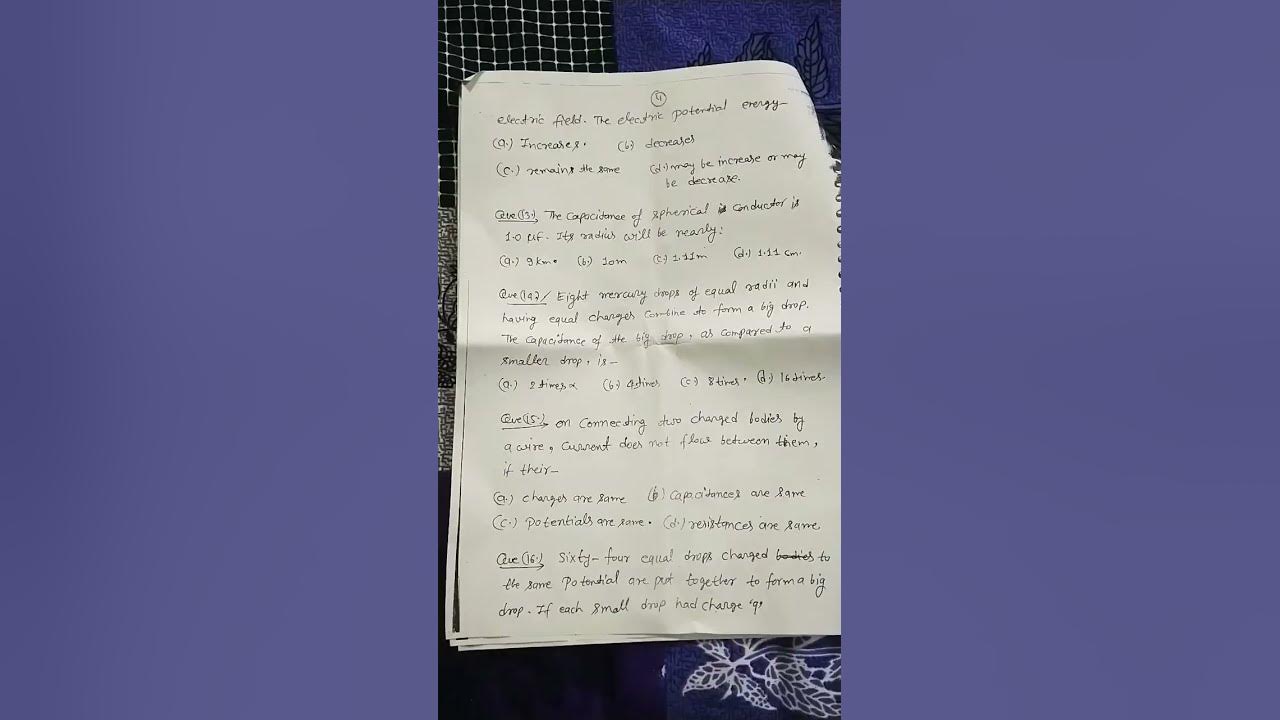 4
electric field. The electric potential energy-
(a.) Increases. (b.) decreases
(c.) remains the same (d.) may be increase or may
be decrease.
Que(13.) The capacitance of spherical conductor is
1.0 μF. Its radius will be nearly:
(a.) 9 km. (b.) 10m (c.) 1.11m (d.) 1.11 cm.
Que(14.) Eight mercury drops of equal radii and
having equal charges combine to form a big drop.
The capacitance of the big drop, as compared to a
smaller drop, is-
(a.) 2 times (b.) 4 times (c.) 8 times. (d.) 16 times.
Que(15.) on connecting two charged bodies by
a wire, current does not flow between them,
if their-
(a.) charges are same (b) capacitances are same
(c.) Potentials are same. (d.) resistances are same
Que(16.) Sixty-four equal drops charged bodies to
the same potential are put together to form a big
drop. If each small drop had charge 'q'